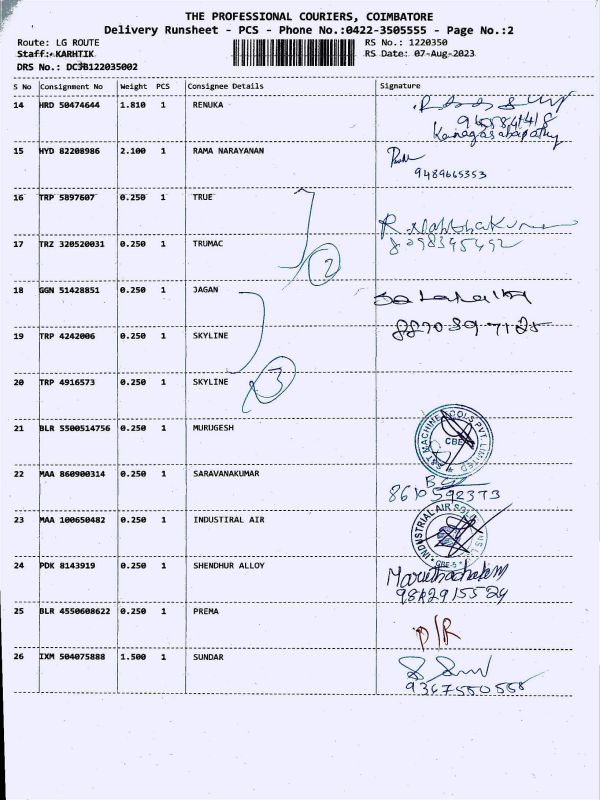 THE PROFESSIONAL COURIERS, COIMBATORE
Delivery Runsheet - PCS - Phone No.:0422-3505555 - Page No.:2
Route: LG ROUTE RS No.: 1220350
Staff: KARHTIK RS Date: 07-Aug-2023
DRS No.: DCJB122035002
S No Consignment No Weight PCS Consignee Details Signature
14 HRD 50474644 1.810 1 RENUKA
Kanagasabapathy
15 HYD 82208986 2.100 1 RAMA NARAYANAN
9489665353
16 TRP 5897607 0.250 1 TRUE
17 TRZ 320520031 0.250 1 TRUMAC
2
18 GGN 51428851 0.250 1 JAGAN
19 TRP 4242006 0.250 1 SKYLINE
20 TRP 4916573 0.250 1 SKYLINE
3
21 BLR 5500514756 0.250 1 MURUGESH
CBE
22 MAA 860900314 0.250 1 SARAVANAKUMAR
8610592373
23 MAA 100650482 0.250 1 INDUSTIRAL AIR
INDUSTRIAL AIR
24 PDK 8143919 0.250 1 SHENDHUR ALLOY
25 BLR 4550608622 0.250 1 PREMA
D/R
26 IXM 504075888 1.500 1 SUNDAR
9367550558